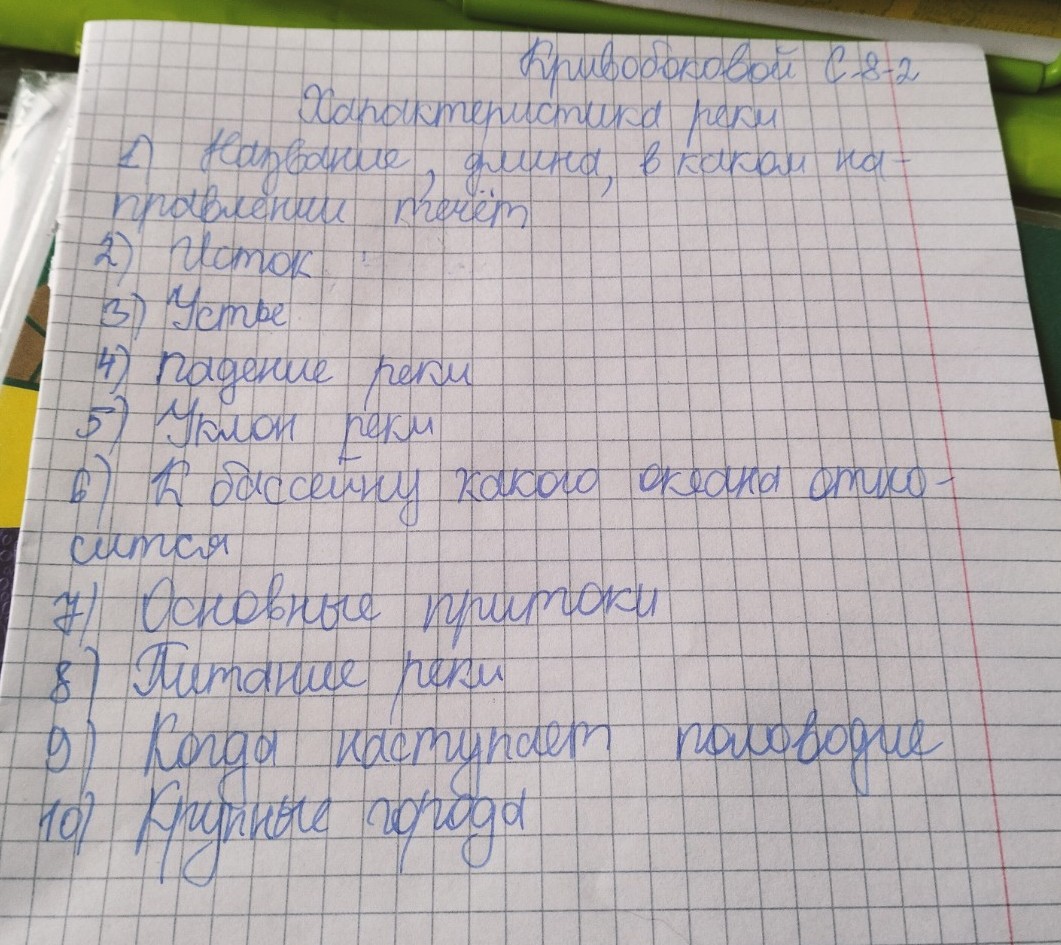 Кривобоковой С-8-2
Характеристика реки
1) Название, длина, в каком на-
правлении течёт
2) Исток
3) Устье
4) Падение реки
5) Уклон реки
6) К бассейну какого океана отно-
сится
7) Основные притоки
8) Питание реки
9) Когда наступает половодие
10) Крупные города